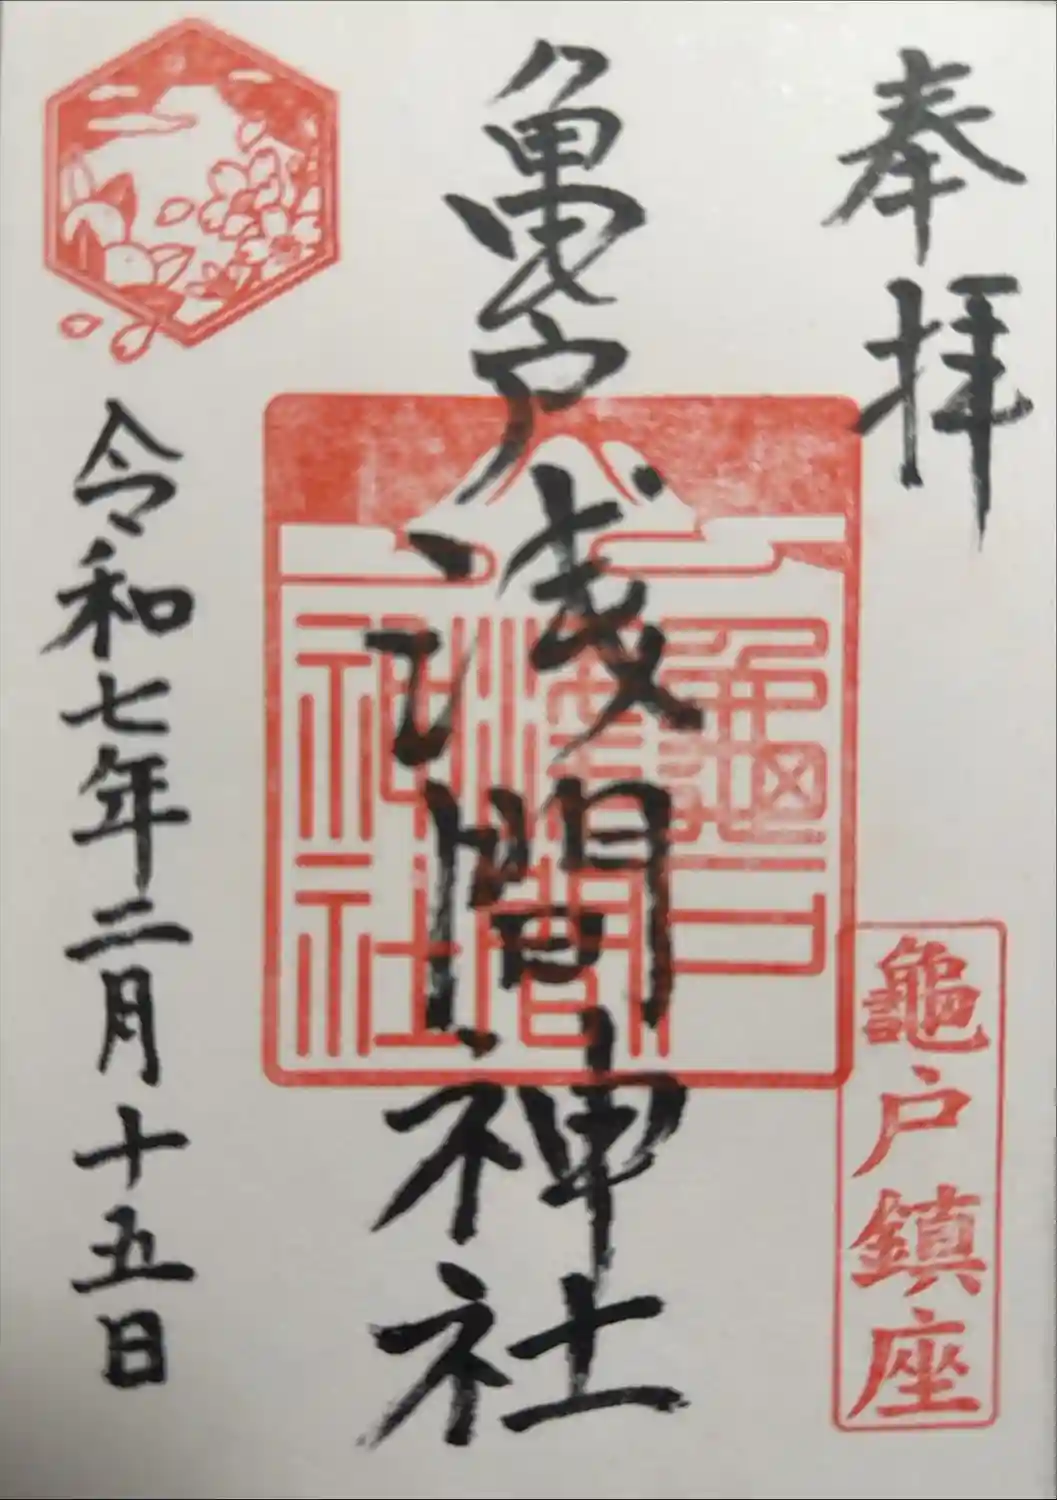 奉拝
亀戸浅間神社
龜戸
淺間
神社
龜戸鎮座
令和七年二月十五日